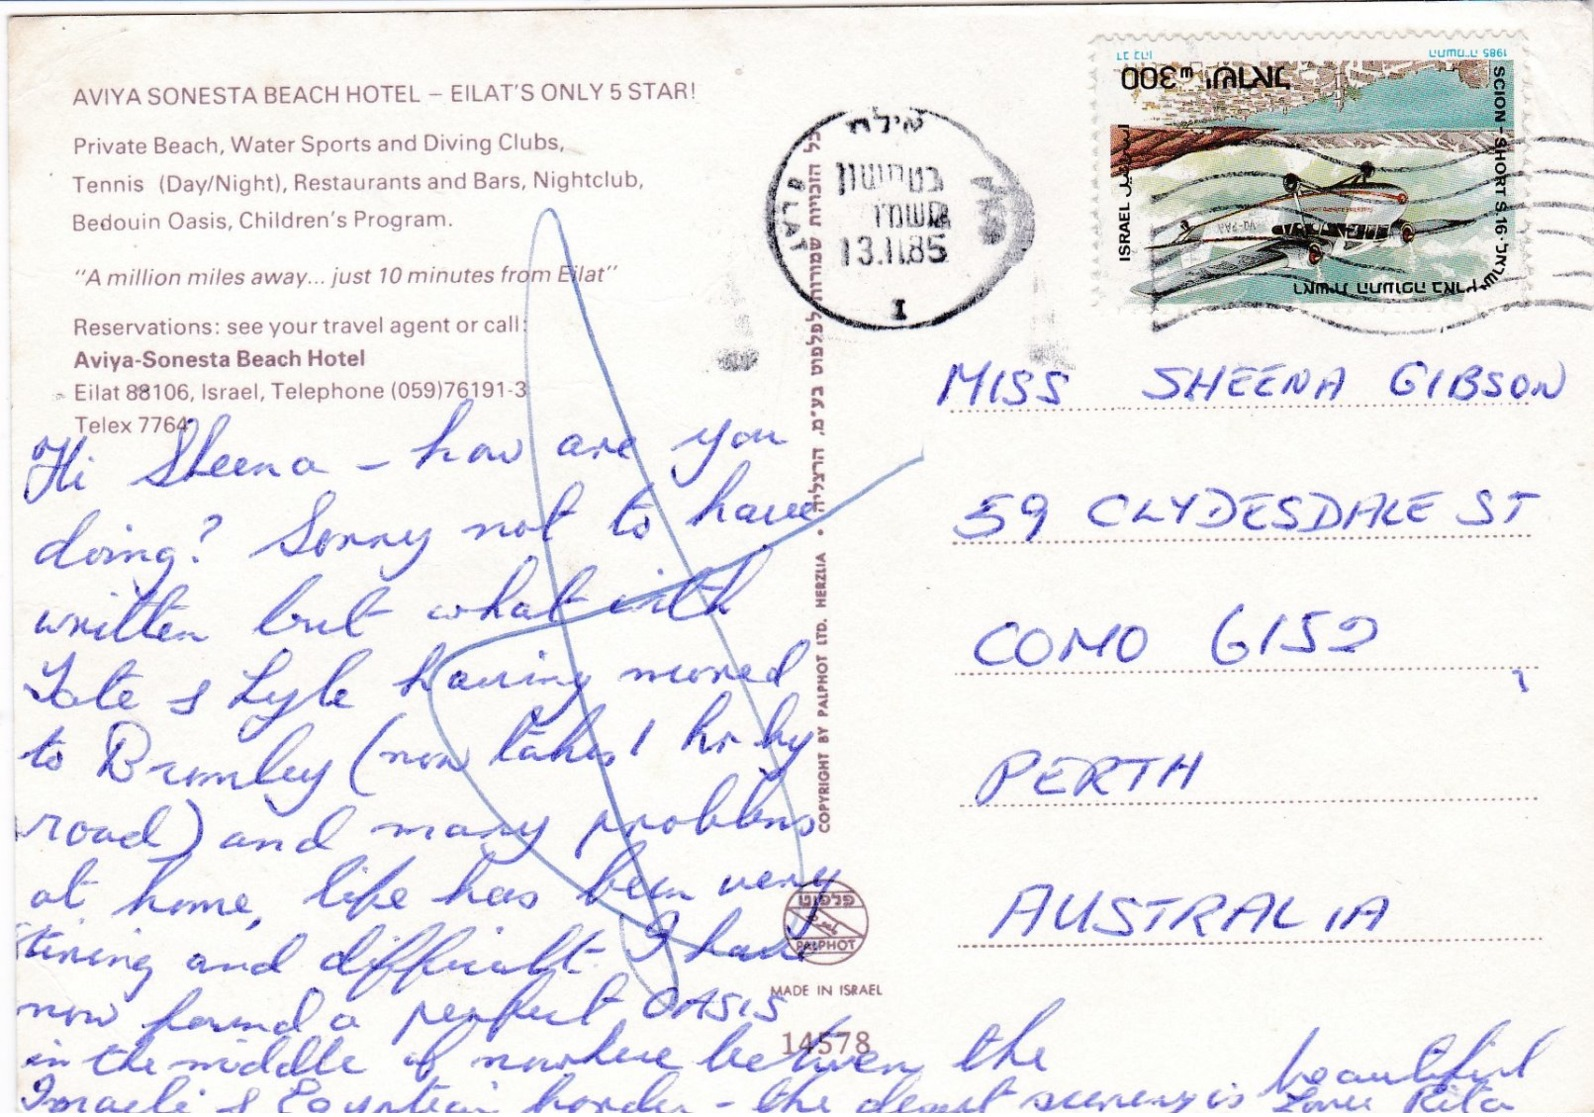 AVIYA SONESTA BEACH HOTEL – EILAT'S ONLY 5 STAR!
Private Beach, Water Sports and Diving Clubs,
Tennis (Day/Night), Restaurants and Bars, Nightclub,
Bedouin Oasis, Children's Program.
"A million miles away... just 10 minutes from Eilat"
Reservations: see your travel agent or call:
Aviya-Sonesta Beach Hotel
Eilat 88106, Israel, Telephone (059)76191-3
Telex 7764
Hi Sheena – how are you
doing? Sorry not to have
written but what with
Tate & Lyle having moved
to Bromley (now takes 1 hr by
road) and many problems
at home, life has been very
tiring and difficult. I have
now found a perfect OASIS
in the middle of nowhere between the
Israeli & Egyptian border – the desert scenery is beautiful
Love Rita
כל הזכויות שמורות לפלפוט בע"מ, הרצליה • COPYRIGHT BY PALPHOT LTD. HERZLIA
פלפוט
PALPHOT
MADE IN ISRAEL
14578
אילת
ELAT
13.11.85
1985
ישראל
300
ISRAEL
اسرائيل
SCION - SHORT S.16
ראשית התעופה בארץ
VQ-PAA
MISS SHEENA GIBSON
59 CLYDESDALE ST
COMO 6152
PERTH
AUSTRALIA